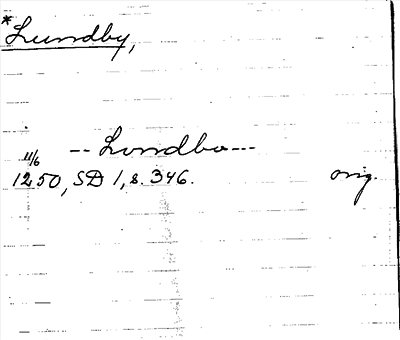 *Lundby,
-- Londbo ---
11/6
1250, SD 1, s. 346. orig.